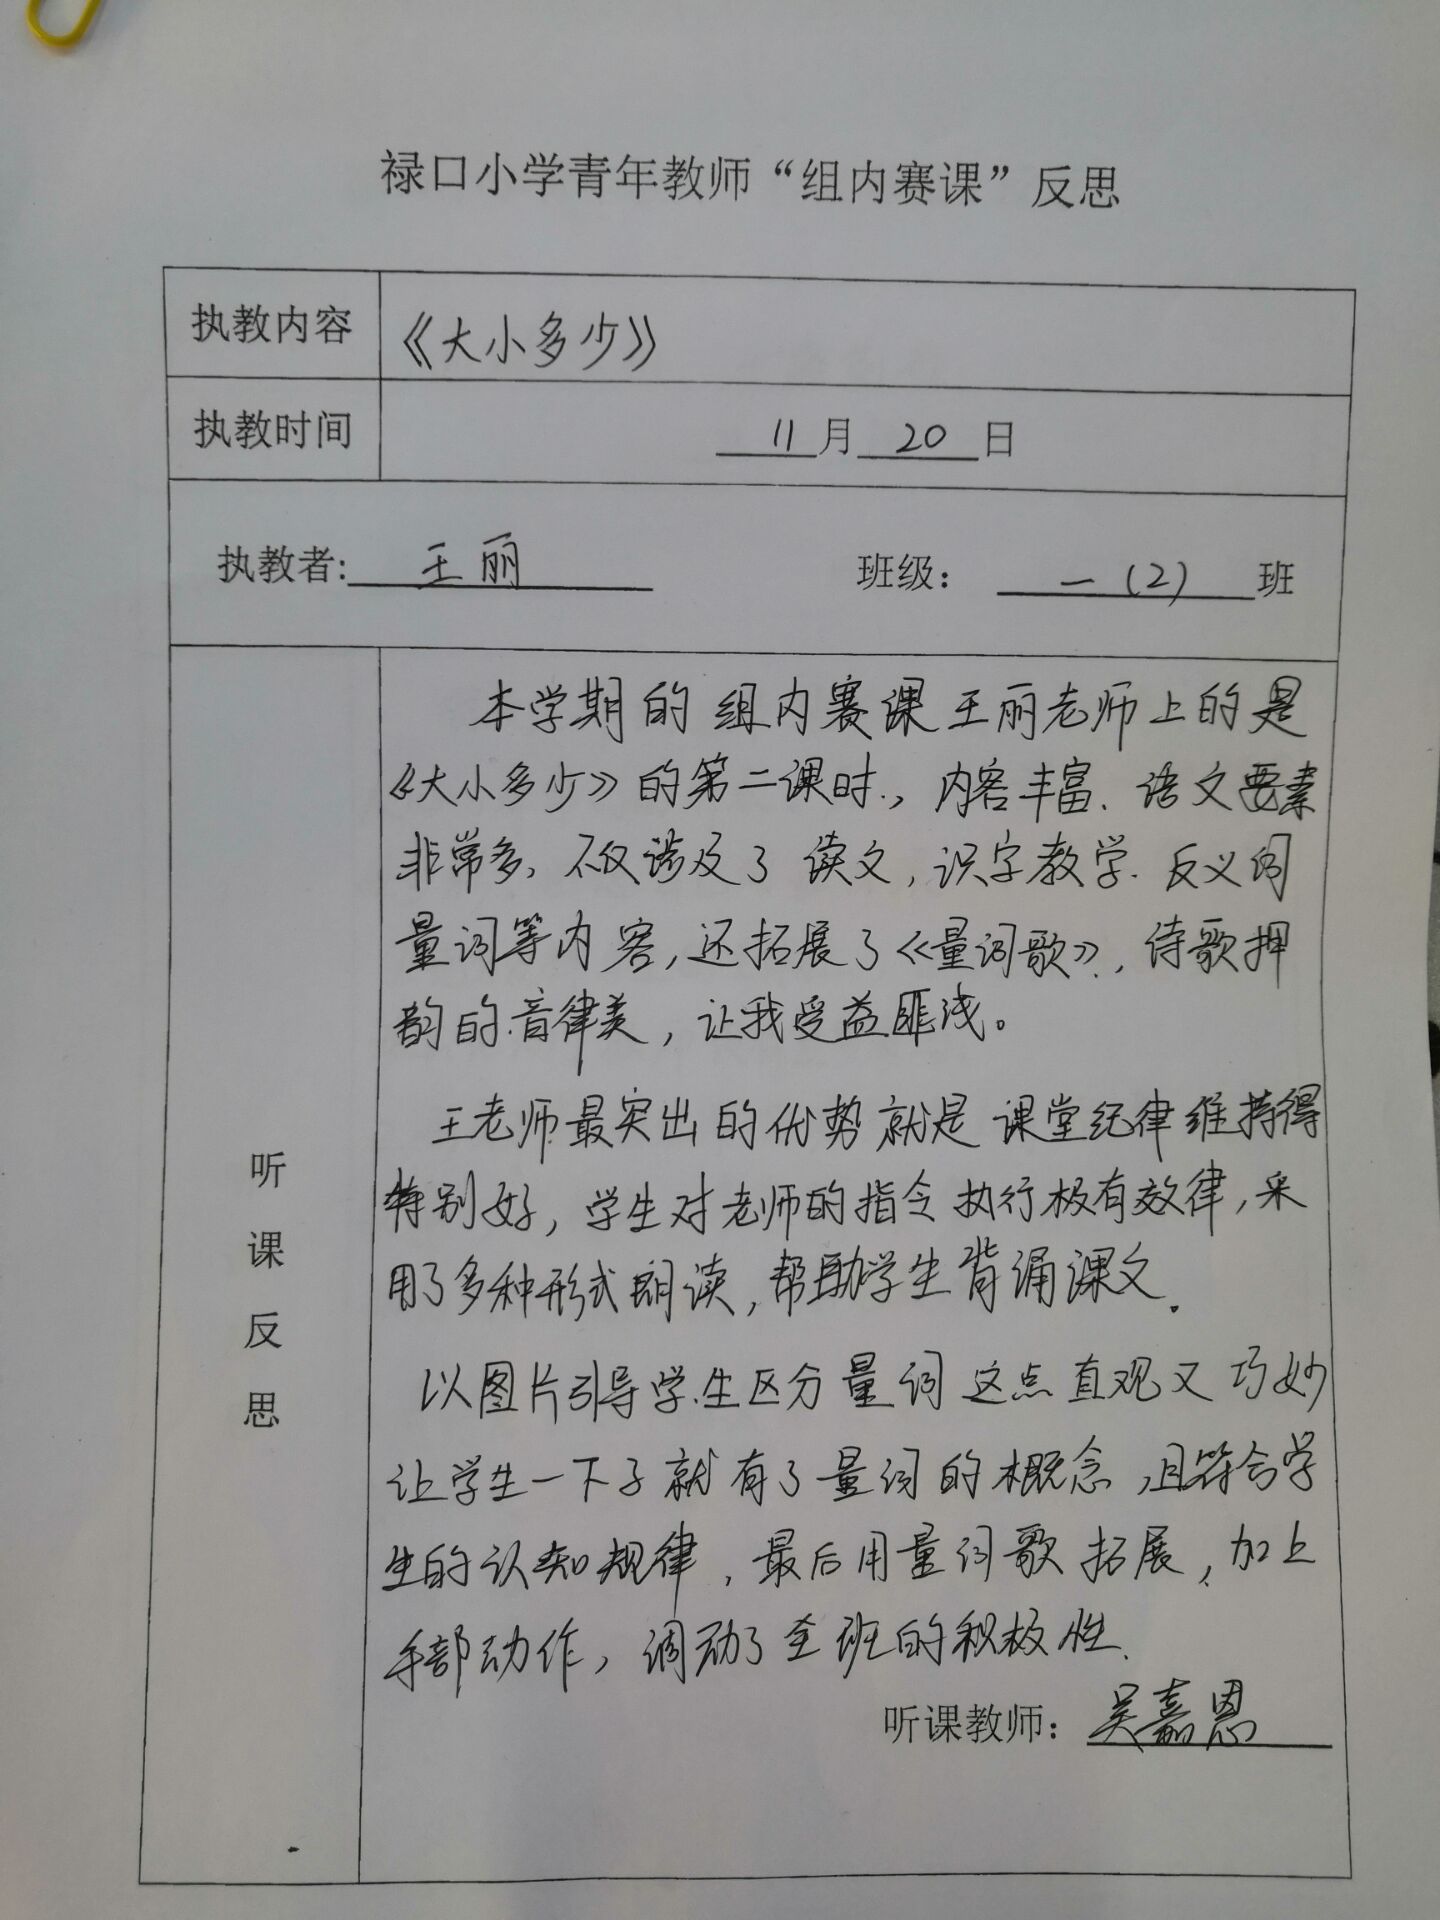 禄口小学青年教师“组内赛课”反思
执教内容 《大小多少》
执教时间 11月20日
执教者: 王丽 班级： 一(2) 班
听课反思
本学期的组内赛课王丽老师上的是
《大小多少》的第二课时.，内容丰富、语文要素
非常多，不仅涉及了读文，识字教学、反义词
量词等内容，还拓展了《量词歌》，诗歌押
韵的音律美，让我受益匪浅。
王老师最突出的优势就是课堂纪律维持得
特别好，学生对老师的指令执行极有效律，采
用了多种形式朗读，帮助学生背诵课文。
以图片引导学生区分量词这点直观又巧妙
让学生一下子就有了量词的概念，且符合学
生的认知规律，最后用量词歌拓展，加上
手部动作，调动了全班的积极性.
听课教师： 吴嘉恩